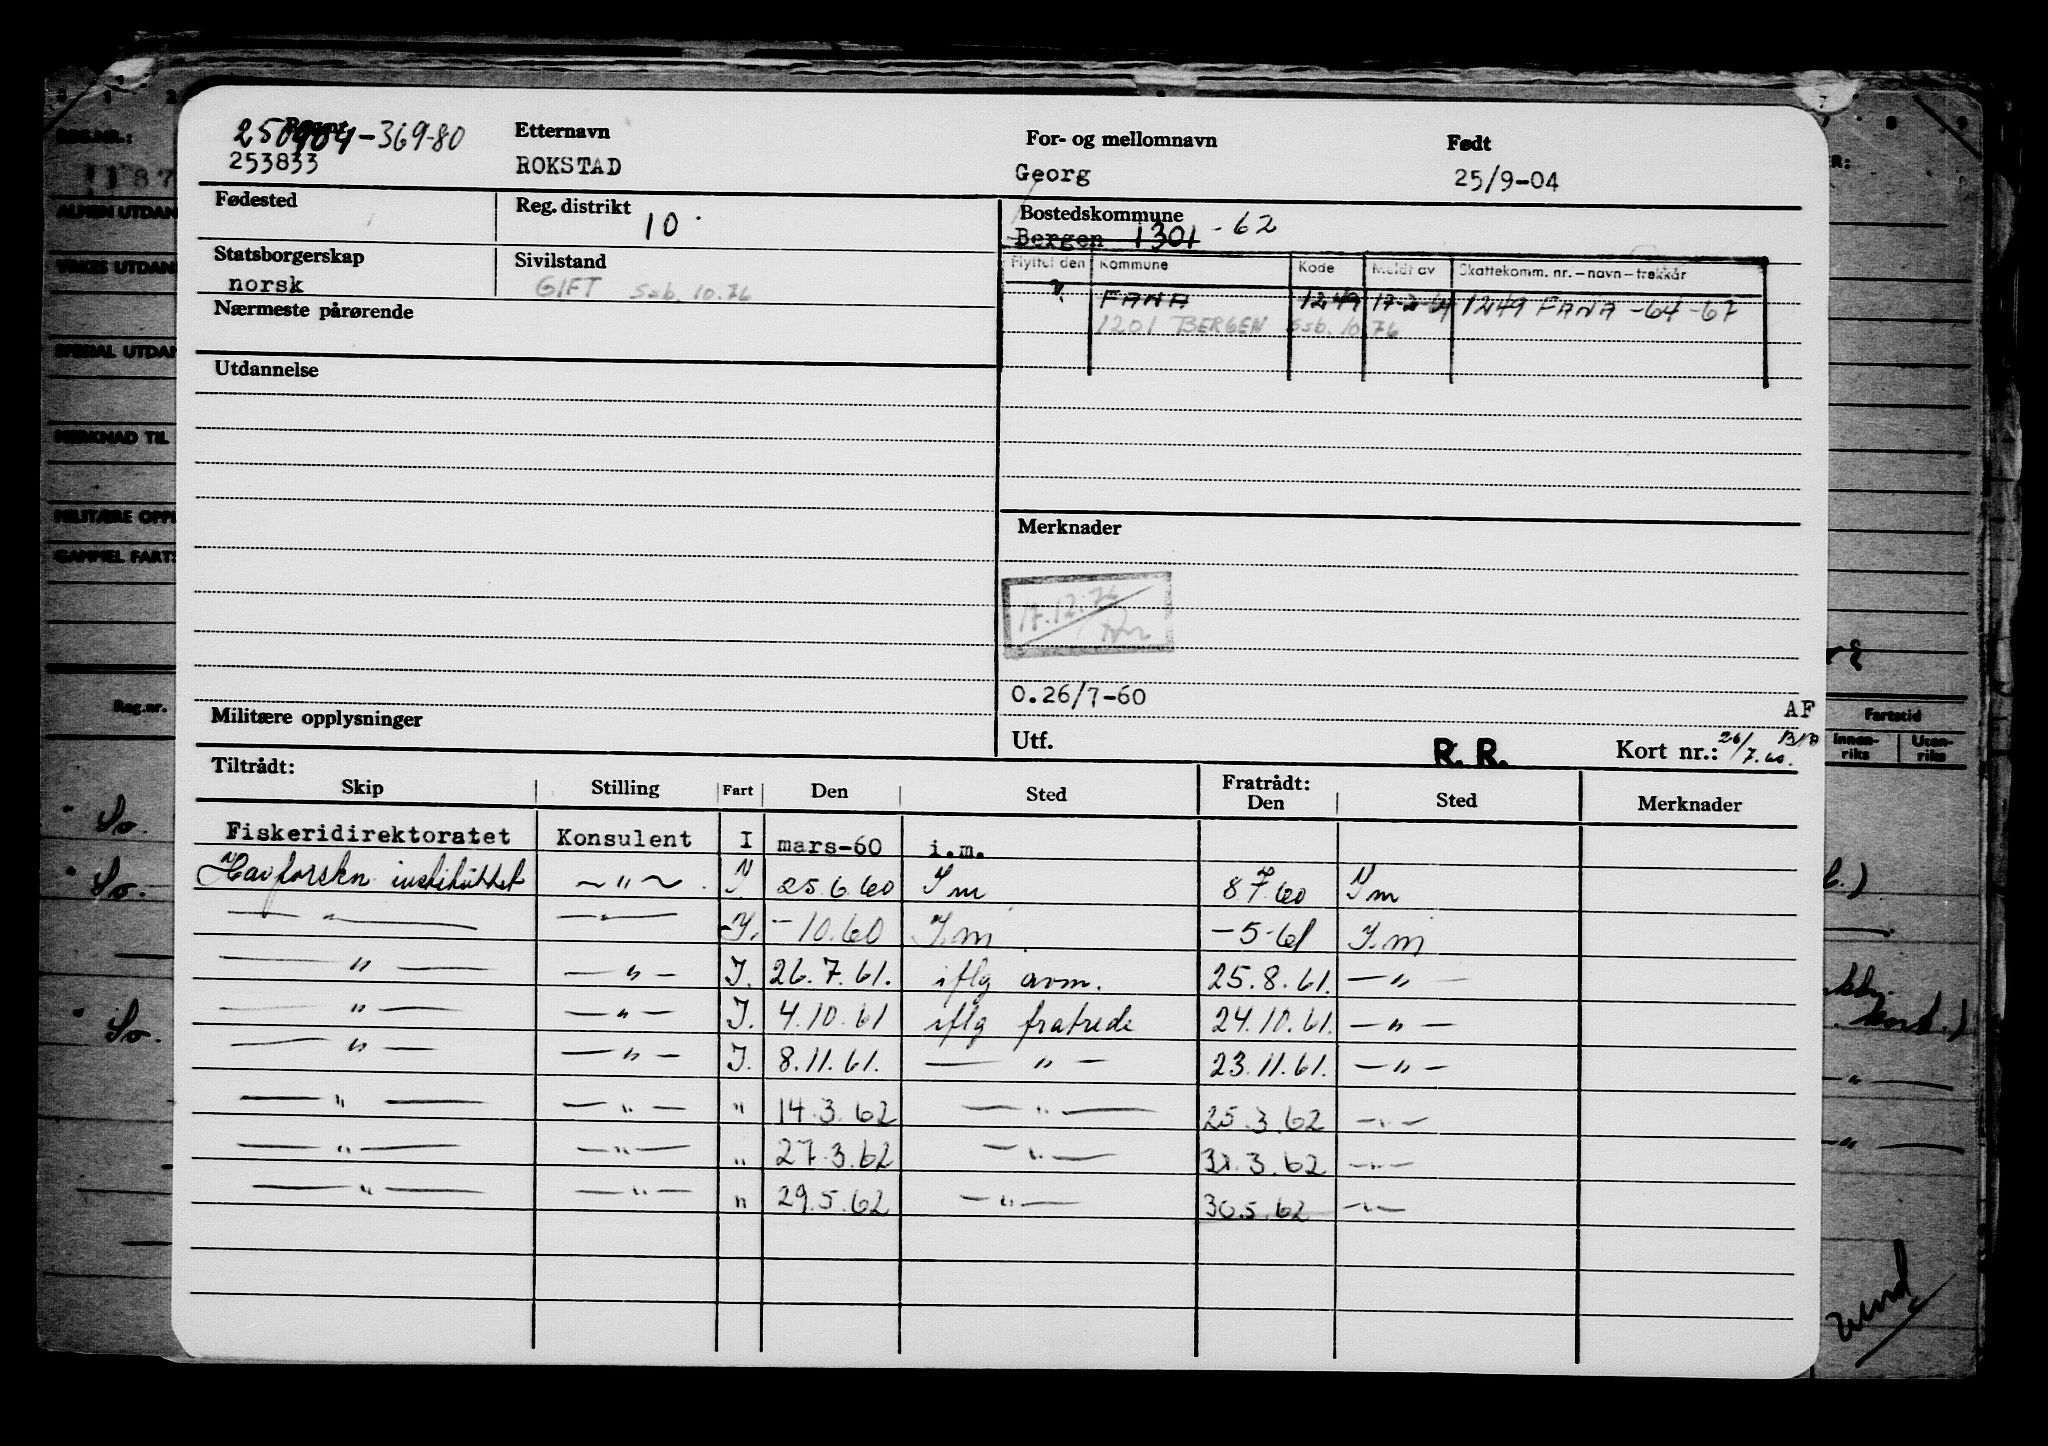 250904-369-80 Etternavn For- og mellomnavn Født
253833 ROKSTAD Georg 25/9-04
Fødested Reg. distrikt 10. Bostedskommune
Bergen 1301 -62
Statsborgerskap Sivilstand Flyttet den Kommune Kode Meldt av Skattekomm. nr.-navn-trekkår
norsk GIFT Ssb. 10.76 FANA 1249 17-2-64 1249 FANA -64 -67
Nærmeste pårørende 1201 BERGEN Ssb. 10.76
Utdannelse
Merknader
17.12.76
0.26/7-60
AF
Militære opplysninger Utf. R. R. Kort nr.: 26/7.60.
Tiltrådt: Fratrådt:
Skip Stilling Fart Den Sted Den Sted Merknader
Fiskeridirektoratet Konsulent I mars-60 i.m.
Havforskn instituttet ~ " ~ I 25.6.60 I m 8 7.60 I m
— " — — " — I. -10.60 I.m -5-61 I.m
— " — — " — I. 26.7.61. iflg avm. 25.8.61. — " —
— " — — " — I. 4.10.61 iflg fratrede 24.10.61. — " —
— " — — " — I. 8.11.61. — " — 23.11.61. — " —
— " — — " — " 14.3.62 — " — 25.3.62 — " —
— " — — " — " 27.3.62 — " — 3.62 — " —
— " — — " — " 29.5.62 — " — 30.5.62 — " —
REG.NR.:
ALMEN UTDAN
YRKES UTDAN
SPESIAL UTDAN
MERKNAD TIL
MILITÆRE OPPL
GAMMEL FARTS
Reg.nr.
So.
So.
So.
Fartstid
Innen-riks Uten-riks